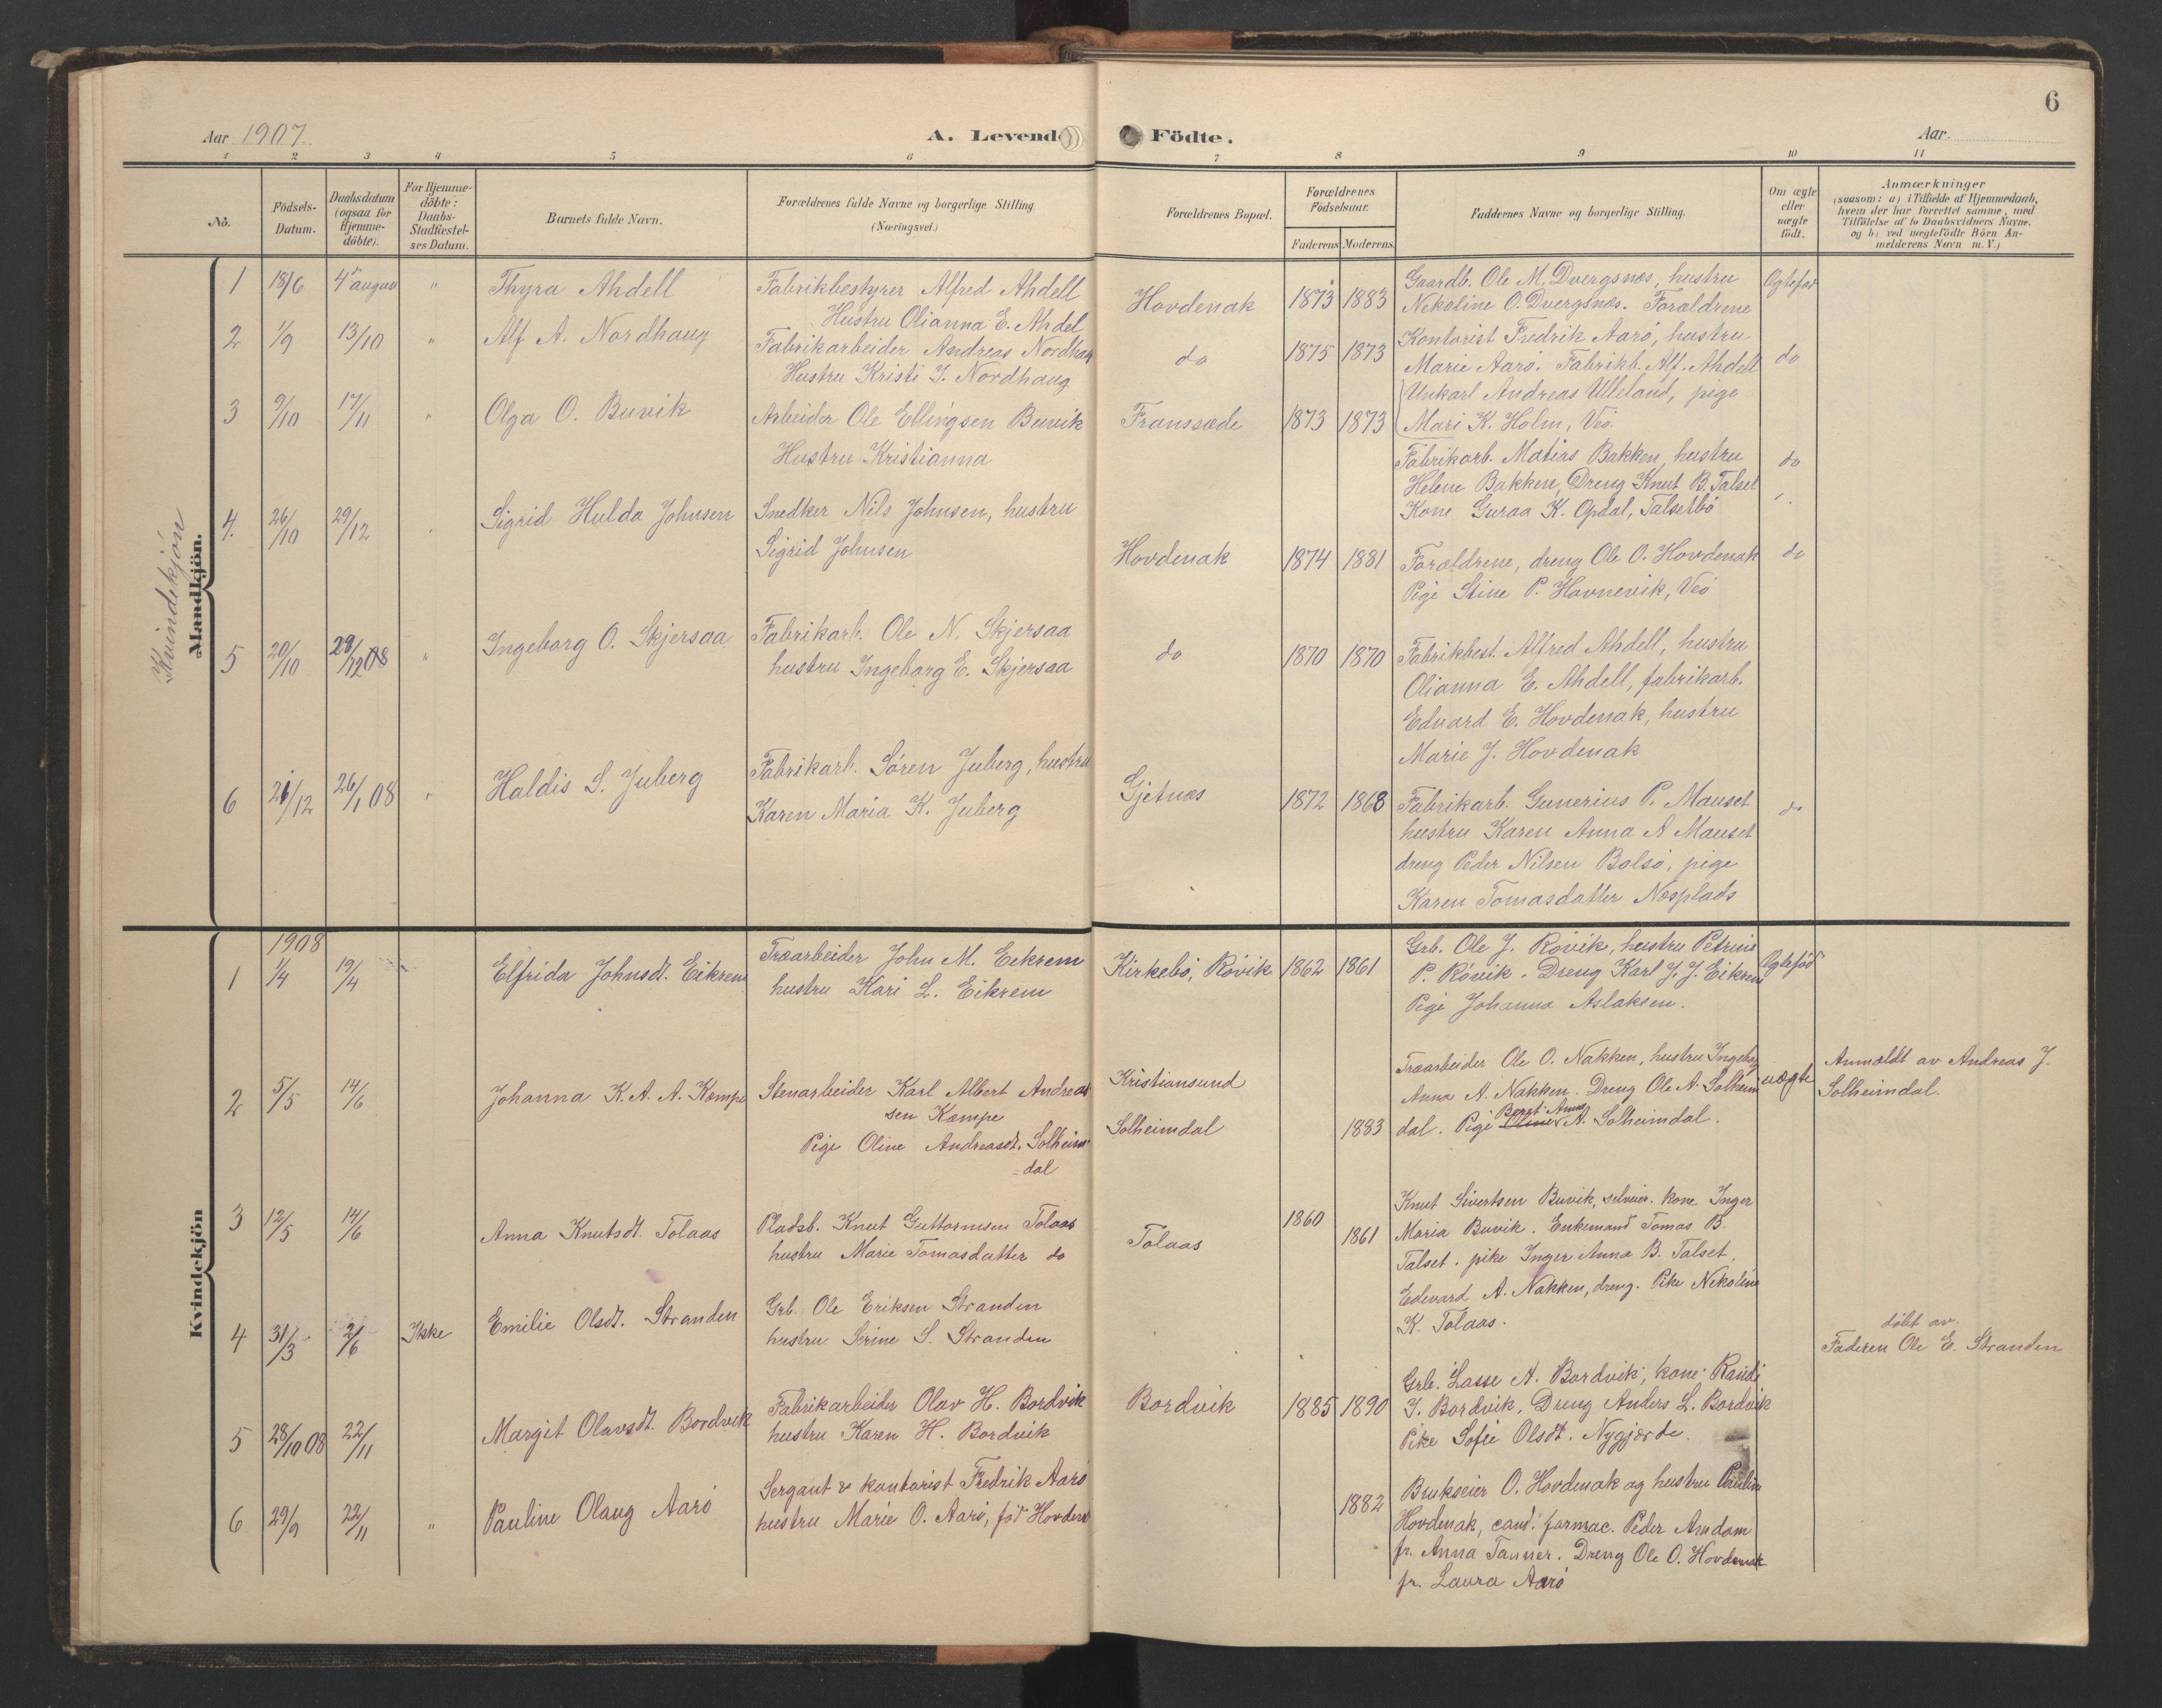 6
Aar 1907.
A. Levend
Födte.
Aar
1 2 3 4 5 6 7 8 9 10 11
No.
Födsels-
Datum.
Daabsdatum
(ogsaa for
Hjemme-
döbte).
For Hjemme-
döbte:
Daabs-
Stadfæstel-
ses Datum.
Barnets fulde Navn.
Forældrenes fulde Navne og borgerlige Stilling
(Næringsvei.)
Forældrenes Bopæl.
Forældrenes
Födselsaar.
Faderens Moderens
Faddernes Navne og borgerlige Stilling.
Om ægte
eller
uægte
födt.
Anmærkninger
(saasom: a) i Tilfælde af Hjemmedaab,
hvem der har forrettet samme, med
Tilföielse af to Daabsvidners Navne.
og b) ved uægtefödte Børn An-
melderens Navn m. V.)
Kvindekjön
Mandkjön.
1 18/6 4 august " Thyra Ahdell
Fabrikbestyrer Alfred Ahdell
Hustru Olianna E. Ahdel
Hovdenak 1873 1883
Gaardb. Ole M. Dvergsnæs, hustru
Nekoline O. Dvergsnæs. Forældrene
Ægtefød
2 1/9 13/10 " Alf A. Nordhaug
Fabrikarbeider Andreas Nordhau
Hustru Kristi J. Nordhaug
do 1875 1873
Kontorist Fredrik Aarö, hustru
Marie Aarö. Fabrikb. Alf. Ahdell
do
3 9/10 17/11 " Olga O. Buvik
Arbeider Ole Ellingsen Buvik
Hustru Kristianna
Franssæde 1873 1873
Unkarl Andreas Ulleland, pige
Mari K. Holm, Veö.
Fabrikarb. Matias Bakken, hustru
Helene Bakken, Dreng Knut B. Talset
Kone Guraa K. Opdal, Talsetbö
do
4. 26/10 29/12 Sigrid Hulda Johnsen
Snedker Nils Johnsen, hustru
Sigrid Johnsen
Hovdenak 1874 1881
Forældrene, dreng Ole O. Hovdenak
Pige Stine P. Havnevik, Veö
do
5 20/10 29/12 08 " Ingeborg O. Skjersaa
Fabrikarb. Ole N. Skjersaa
hustru Ingeborg E. Skjersaa
do 1870 1870
Fabrikbest. Alfred Ahdell, hustru
Olianna E. Ahdell, fabrikarb.
Edvard E. Hovdenak, hustru
Marie J. Hovdenak
6 21/12 26/1 08 " Haldis S. Juberg
Fabrikarb. Sören Juberg, hustru
Karen Maria K. Juberg
Gjetnæs 1872 1868
Fabrikarb. Gunerius P. Mauset
hustru Karen Anna A Mauset
dreng Peder Nilsen Bolsö, pige
Karen Tomasdatter Næsplads
do
Kvindekjön
1908
1 1/4 19/4 Elfrida Johnsdt. Eikrem
Træarbeider John M. Eekrem
hustru Kari L. Eikrem
Kirkebö, Rövik 1862 1861
Grb. Ole J. Rövik, hustru Petrine
P. Rövik. Dreng Karl J. J. Eikrem
Pige Johanna Aslaksen.
Ægtefød
2 5/5 14/6 Johanna K. A. A. Kæmpe
Stenarbeider Karl Albert Andreas
sen Kæmpe
Pige Oline Andreasdt. Solheim-
dal
Kristiansund
Solheimdal 1883
Træarbeider Ole O. Nakken, hustru Ingeborg
Anna A. Nakken. Dreng Ole A. Solheim
Beret Anna
dal. Pige Oline A. Solheimdal.
uægte
Anmeldt av Andreas J.
Solheimdal.
3 12/5 14/6 Anna Knutsdt. Tolaas
Pladsb. Knut Guttormsen Tolaas
hustru Marie Tomasdatter do
Tolaas 1860 1861
Knut Sivertsen Buvik, selveier. kone Inger
Maria Buvik. Enkemand Tomas B.
Talset. pike Inger Anna B. Talset.
Edevard A. Nakken, dreng. Pike Nekoline
K. Tolaas.
4 31/3 2/6 Ikke Emilie Olsdt. Stranden
Grb. Ole Eriksen Stranden
hustru Serine S. Stranden
döbt av
Faderen Ole E. Stranden
5 28/10 08 22/11 Margit Olavsdt. Bordvik
Fabrikarbeider Olav H. Bordvik
hustru Karen H. Bordvik
Bordvik 1885 1890
Grb. Lasse A. Bordvik, kone Randi
J. Bordvik. Dreng Anders L. Bordvik
Pike Sofie Olsdt. Nygjærde.
6 29/9 22/11 " Pauline Olaug Aarö
Sergant & kontorist Fredrik Aarö
hustru Marie O. Aarö, föd Hovden
1882
Brukseier O. Hovdenak og hustru Pauline
Hovdenak, cand. farmac. Peder Amdam
fr. Anna Tanner. Dreng Ole O. Hovdenak
fr. Laura Aarö